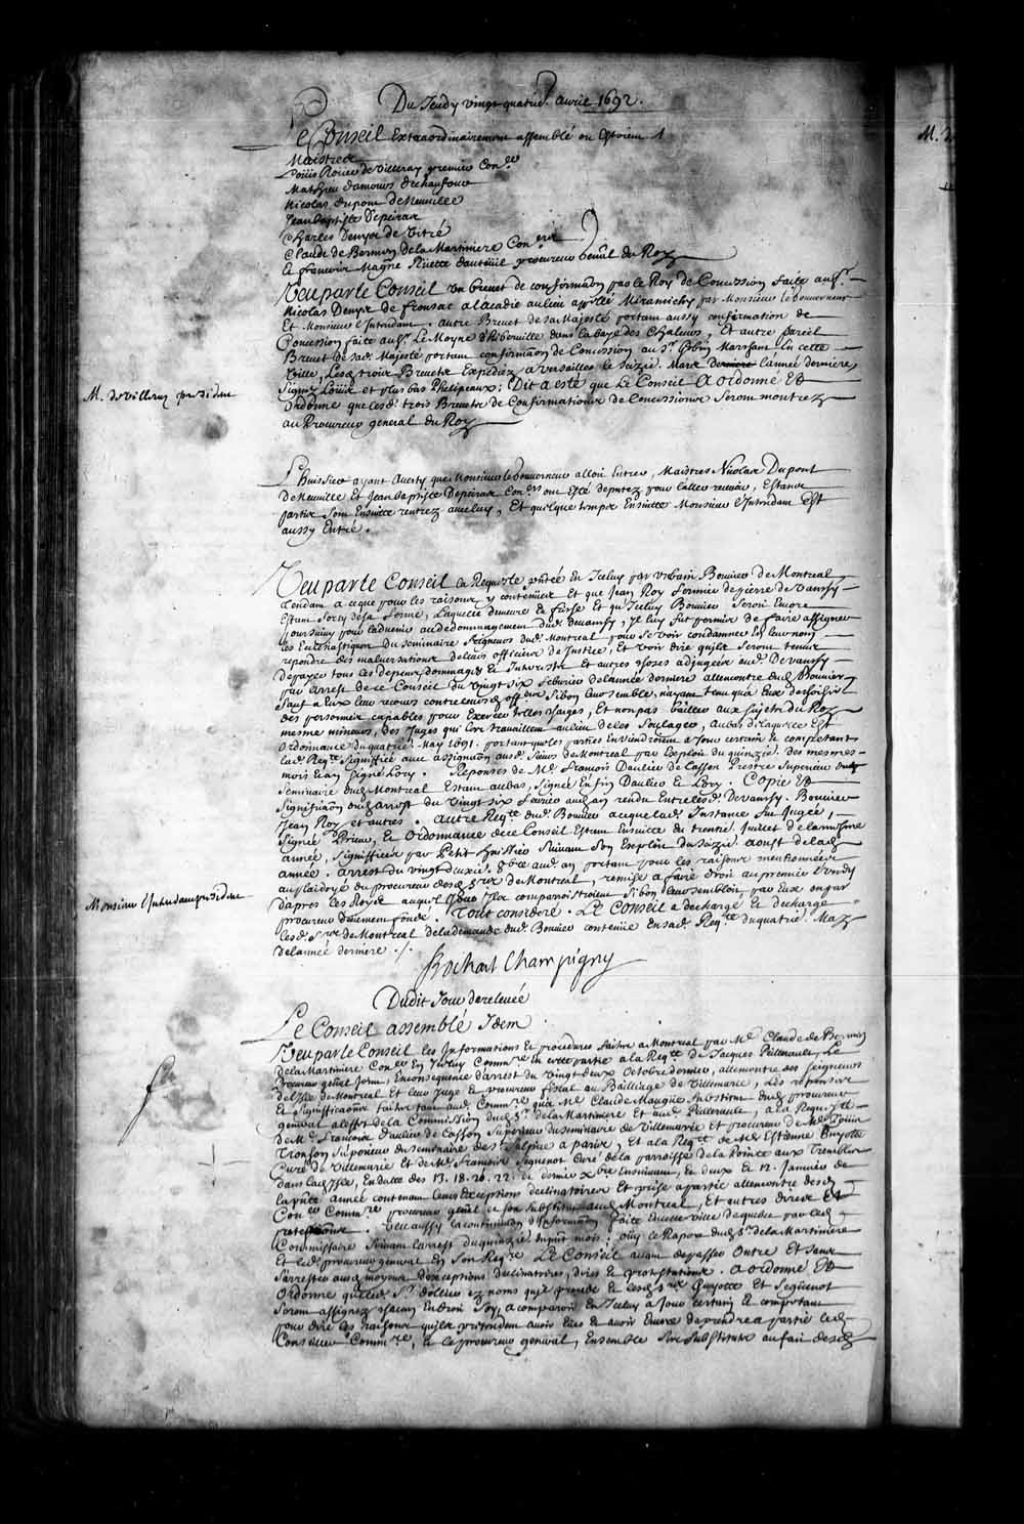 Du Jeudy vingt quatrie. avril 1692.
Le Conseil Extraordinairement assemblé ou estoient
Maistres
Loüis Roüer de Villeray premier Con.er
Mathieu damours deschaufour
Nicolas dupont de Neuville
Jean baptiste Depeiras
Charles Denys de Vitré
Claude de Bermen de la Martiniere Con.ers
Et françois Magne Ruette dauteüil procureur general du Roy
Veu par le Conseil un brevet de confirmaon par le Roy de Concession faite au Sr.
Nicolas Denys de fronsac a lacadie au lieu apellé Miramichy par Monsieur le Gouverneur
Et Monsieur l'Intendant. autre Brevet de sa Majesté portant aussy confirmation de
Concession faite au Sr. Le Moyne d'hiberville dans la baye des Chaleurs, Et autre pareil
Brevet de sad. Majesté portant confirmaon de Concession au Sr. Marchant En cette
Ville, Lesd. trois Brevets Expediez a Versailles le seizie. Mars derniere L'année derniere,
Signez Loüis et plus bas Phelipeaux; Dit a esté que Le Conseil A ordonné Et
Ordonne que lesd. trois Brevets de Confirmations de Concessions Seront montrez
au Procureur general du Roy
M. de Villeray president
L'huissier ayant averty que Monsieur le Gouverneur alloit Entrer, Maistres Nicolas Dupont
de Neuville Et Jean baptiste Depeiras Con.ers ont esté deputez pour l'aller recevoir, Estans
partis Sont Ensuitte rentrez avec luy, Et quelque temps Ensuitte Monsieur l'Intendant Est
aussy Entré.
Veu par le Conseil la Requeste pntée En Iceluy par Urbain Bouvier de Montreal
Tendant a ce que pour les raisons y contenües Et que Jean Roy fermier de pierre de Vanssy
Estant Sorty de sa ferme, Laquelle demeure En frische Et qu'Iceluy Bouvier Seroit Encore
poursuivy pour l'advenir au dedommagement dud. devanssy, Il luy fut permis de faire assigner
les Ecclesiastiques du Seminaire Seigneurs dud. Montreal pour Se voir condamner En leur nom
repondre des malversations de leurs officiers de Justice, Et voir dire qu'ils Seront tenus
de payer tous les depens, dommages Et Interests Et autres choses adjugées aud. Devanssy
par arrest de ce Conseil du vingt six febvrier de l'année derniere allencontre dud. Bouvier
Sauf a Eux leur recours contre leursd. off.ers Si bon leur semble, n'ayant tenu qu'a Eux de choisir
des personnes capables pour Exercer telles charges, Et non pas bailler aux sujets du Roy
mesme mineurs, des Juges qui les travaillent au lieu de les Soulager, au bas de laquelle Est
Ordonnance du quatrie. May 1691. portant que les parties En viendroient a Jour certain Et competant
lad. Reqte Signiffiée avec assignaon ausd. Sieurs de Montreal par Exploit du quinzie. des mesmes
mois Et an Signé Lory. Reponses de Me. François Daulier de Casson Prestre Superieur dud.
Seminaire dud. Montreal Estant au bas, Signée En fin Daulier Et Lory. Copie Et
Signifficaon dud. arrest du Vingt six fevrier aud. an rendu Entre lesd. Devanssy. Bouvier
Jean Roy et autres. autre Reqte dud. Bouvier a ce que lad. Instance fut Jugée,
Signée Prieur, Et Ordonnance de ce Conseil Estant Ensuitte du trentie. Juillet de la mesme
année, Signiffiées par Petit huissier Suivant Son Exploit du seizie. aoust de lad.
année. arrest du vingt deuxie. 8bre aud. an portant pour les raisons mentionnées
au plaidoyé du procureur desd. Srs de Montreal, remise a faire droit au premier Lundy
d'apres les Roys auquel Jour Ils comparoistroient Si bon leur sembloit, par Eux ou par
procureur deüement fondé. Tout consideré. Le Conseil a dechargé Et decharge
lesd. Srs de Montreal de la demande dud. Bouvier contenüe En sad. Reqte du quatrie. May
de l'année derniere ./.
Monsieur l'Intendant president
Bochart Champigny
Dudit Jour de relevée
Le Conseil assemblé Idem
Veu par le Conseil les Informations Et procedures faites a Montreal par Me. Claude de Bermen
de la Martiniere Con.er En Iceluy Comm.re En cette partie a la Reqte de Jacques Pillereault, Le
Procureur general Joint, En consequence d'arrest du vingt deux Octobre dernier, allencontre des Seigneurs
de l'Isle de Montreal Et leur Juge Et procureur fiscal au Bailliage de Villemarie, Les reponses
Et Signifficaons faites tant aud. Comm.re qu'a Me. Claude Maugüe Substitut dud. procureur
general a l'effet de la Commission dud. Sr. de la Martiniere Et aud. Pillereault, a la Requeste
de Me. François Daulier de Casson Superieur du seminaire de Villemarie Et procureur de Me. Loüis
Tronson Superieur du seminaire de St. Sulpice a paris, Et a la Reqte de Me. Estienne Guyotte
Curé de Villemarie Et de Me. François Seguenot Curé de la parroisse de la Pointe aux Trembles
dans lad. Isle, En datte des 13. 18. 20. 22. de dernier Xbre Ensuivant, Et deux Et 12. Janvier de
la pnte année contenant leurs Exceptions declinatoires Et prise a partie allencontre desd.
Con.er Comm.re procureur general Et son Substitut aud. Montreal, Et autres dires Et
protestations. Veu aussy la continuation d'Informaon faite En cette ville de quebec par led.
Commissaire Suivant l'arrest du quinzie. du pnt mois; Oüy le Raport dud. Sr. de la Martiniere
Et led. procureur general En Son Reqre Le Conseil avant de passer Outre Et Sans
S'arrester ausd. moyens d'exceptions declinatoires, dires Et protestations. A ordonné Et
Ordonne que led. Sr. Dollier Ez noms qu'il procede Et lesd. Srs Guyotte Et Seguenot
Seront assignez chacun En droit Soy, a comparoir En Iceluy a Jour certain Et competant
pour dire les raisons qu'ils pretendent avoir Eües Et avoir Encore de prendre a partie led.
Conseiller Comm.re, Et le procureur general, Ensemble Son Substitut au fait desd.